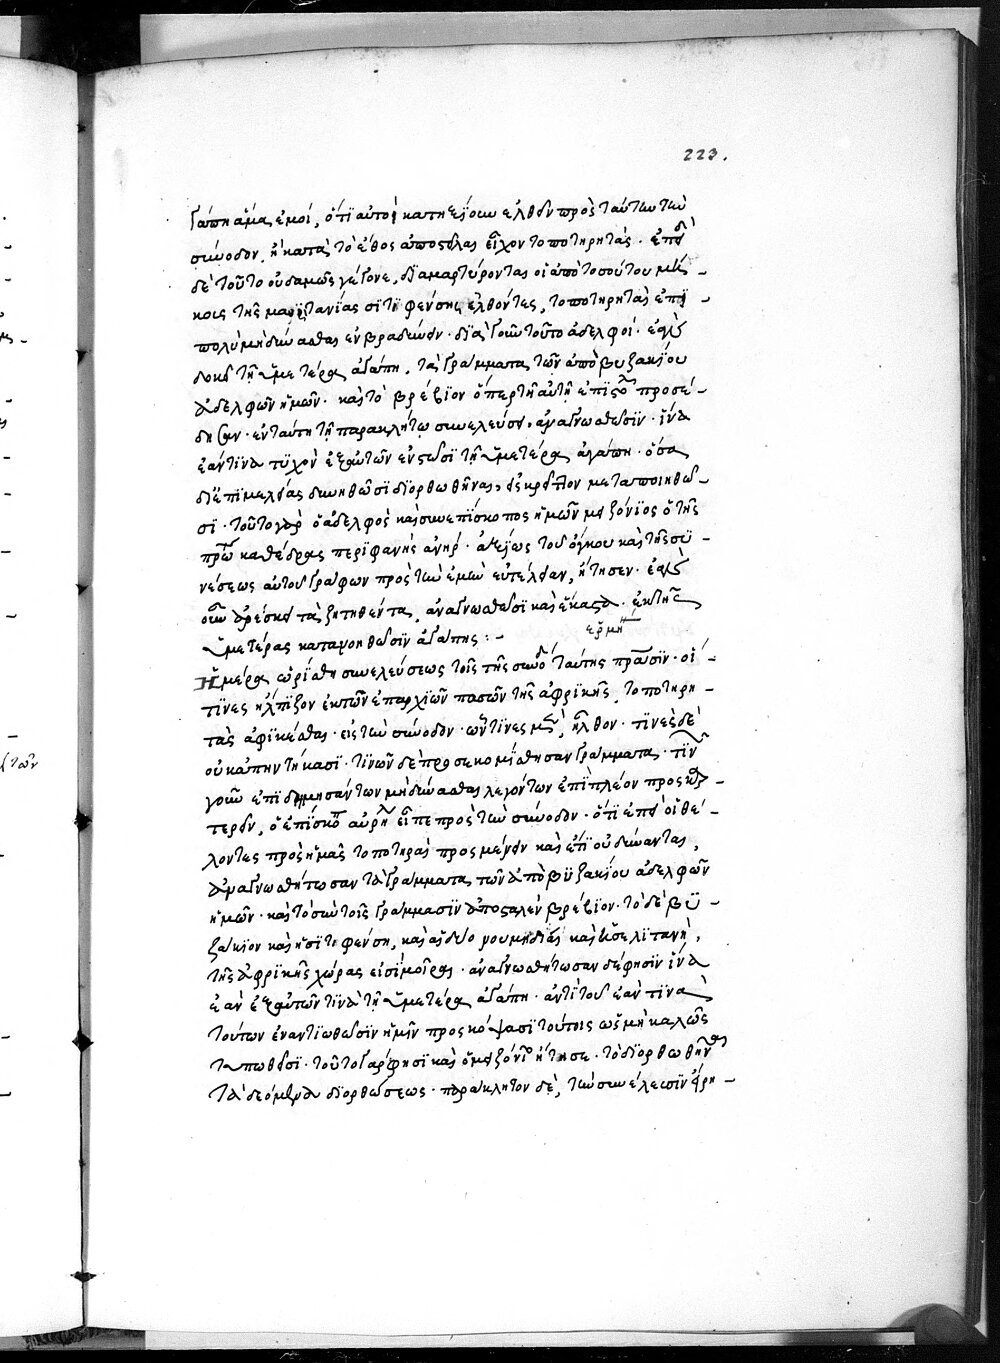 223.
γάπη ἅμα ἐμοί, ὅτι αὐτοὶ κατηξίουν ἐλθεῖν πρὸς ταύτην τὴν
σύνοδον, ἢ κατὰ τὸ ἔθος ἀποστεῖλαι εἶχον τοποτηρητάς. ἐπεὶ
δὲ τοῦτο οὐδαμῶς γέγονε, διαμαρτύρονται οἱ ἀπὸ τοσούτου μή-
κους τῆς μαυριτανίας σιτιφένσης ἐλθόντες, τοποτηρηταὶ ἐπὶ
πολὺ μὴ δύνασθαι ἐνβραδύνειν. διὰ γοῦν τοῦτο ἀδελφοί. ἐὰν
δοκεῖ τῇ ὑμετέρᾳ ἀγάπῃ, τὰ γράμματα τῶν ἀπὸ βυζακίου
ἀδελφῶν ἡμῶν. καὶ τὸ βρέβϊον ὅπερ τῇ αὐτῇ ἐπιστο προσέ-
δησαν. ἐν ταύτῃ τῇ παρακλήτῳ συνελεύσει, ἀναγνωσθῶσϊν. ἵνα
ἐάν τινα τυχὸν ἐξ αὐτῶν ἐνστῶσι τῇ ὑμετέρᾳ ἀγάπῃ. ὅσα
δι' ἐπιμελείας δυνηθῶσι διορθωθῆναι, εἰς κρεῖττον μεταποιηθῶ-
σι. τοῦτο γὰρ ὁ ἀδελφὸς καὶ συνεπίσκοπος ἡμῶν μειζόνιος ὁ τῆς
πρώ καθέδρας περιφανὴς ἀνήρ. ἀξίως τοῦ ὄγκου καὶ τῆς συ-
νέσεως αὐτοῦ γράφων πρὸς τὴν ἐμὴν εὐτέλειαν, ᾔτησεν. ἐὰν
οὖν ἀρέσκει τὰ ζητηθέντα, ἀναγνωσθῶσι καὶ ἕκαστα. ἐκ τῆς
ὑμετέρας κατανοηθῶσϊν ἀγάπης: -
ἑρμη
Ἡμέρα ὡρίσθη συνελεύσεως τοῖς τῆς συνόδ ταύτης πράσϊν. οἵ-
τινες ἤλπιζον ἐκ πῶν ἐπαρχιῶν πασῶν τῆς ἀφρικῆς, τοποτηρη-
τὰς ἀφικέσθαι. εἰς τὴν σύνοδον. ὧν τινες μὲν, ἦλθον. τινὲς δὲ
οὐκ ἀπηντήκασι. τινῶν δὲ προσεκομίσθησαν γράμματα. τιν
γοῦν ἐπιδημησάντων μὴ δύνασθαι λεγόντων ἐπὶ πλέον προσκαρ-
τερεῖν, ὁ ἐπίσκο αὐρη εἶπε πρὸς τὴν σύνοδον. ὅτι ἐπεὶ οἱ θέ-
λοντες πρὸς ἡμᾶς τοποτηραὶ προσμένειν καὶ ἔτι οὐ δύνανται,
ἀναγνωσθήτωσαν τὰ γράμματα τῶν ἀπὸ βϋζακίου ἀδελφῶν
ἡμῶν. καὶ τὸ σὺν τοῖς γράμμασϊν ἀποσταλὲν βρέβϊον. τὸ δὲ βϋ-
ζάκιον καὶ ἡ σιτιφένση, καὶ αἱ δύο νουμηδίαι καὶ ἡ σελιτανὴ,
τῆς ἀφρικῆς χώρας εἰσὶ μοῖραι. ἀναγνωσθήτωσαν δέ φησϊν ἵνα
ἐὰν ἐξ αὐτῶν τινὰ τῇ ὑμετέρᾳ ἀγάπῃ. ἀντὶ τοῦ ἐὰν τινὰ
τούτων ἐναντιωθῶσϊν ἡμῖν προσκόψασι τούτοις ὡς μὴ καλῶς
τυπωθεῖσι. τοῦτο γάρ φησϊ καὶ ὁ μειζόνι ᾔτησε. τὸ διορθωθῆναι
τὰ δεόμενα διορθώσεως. παράκλητον δὲ, τὴν συνέλευσϊν εἴρη-